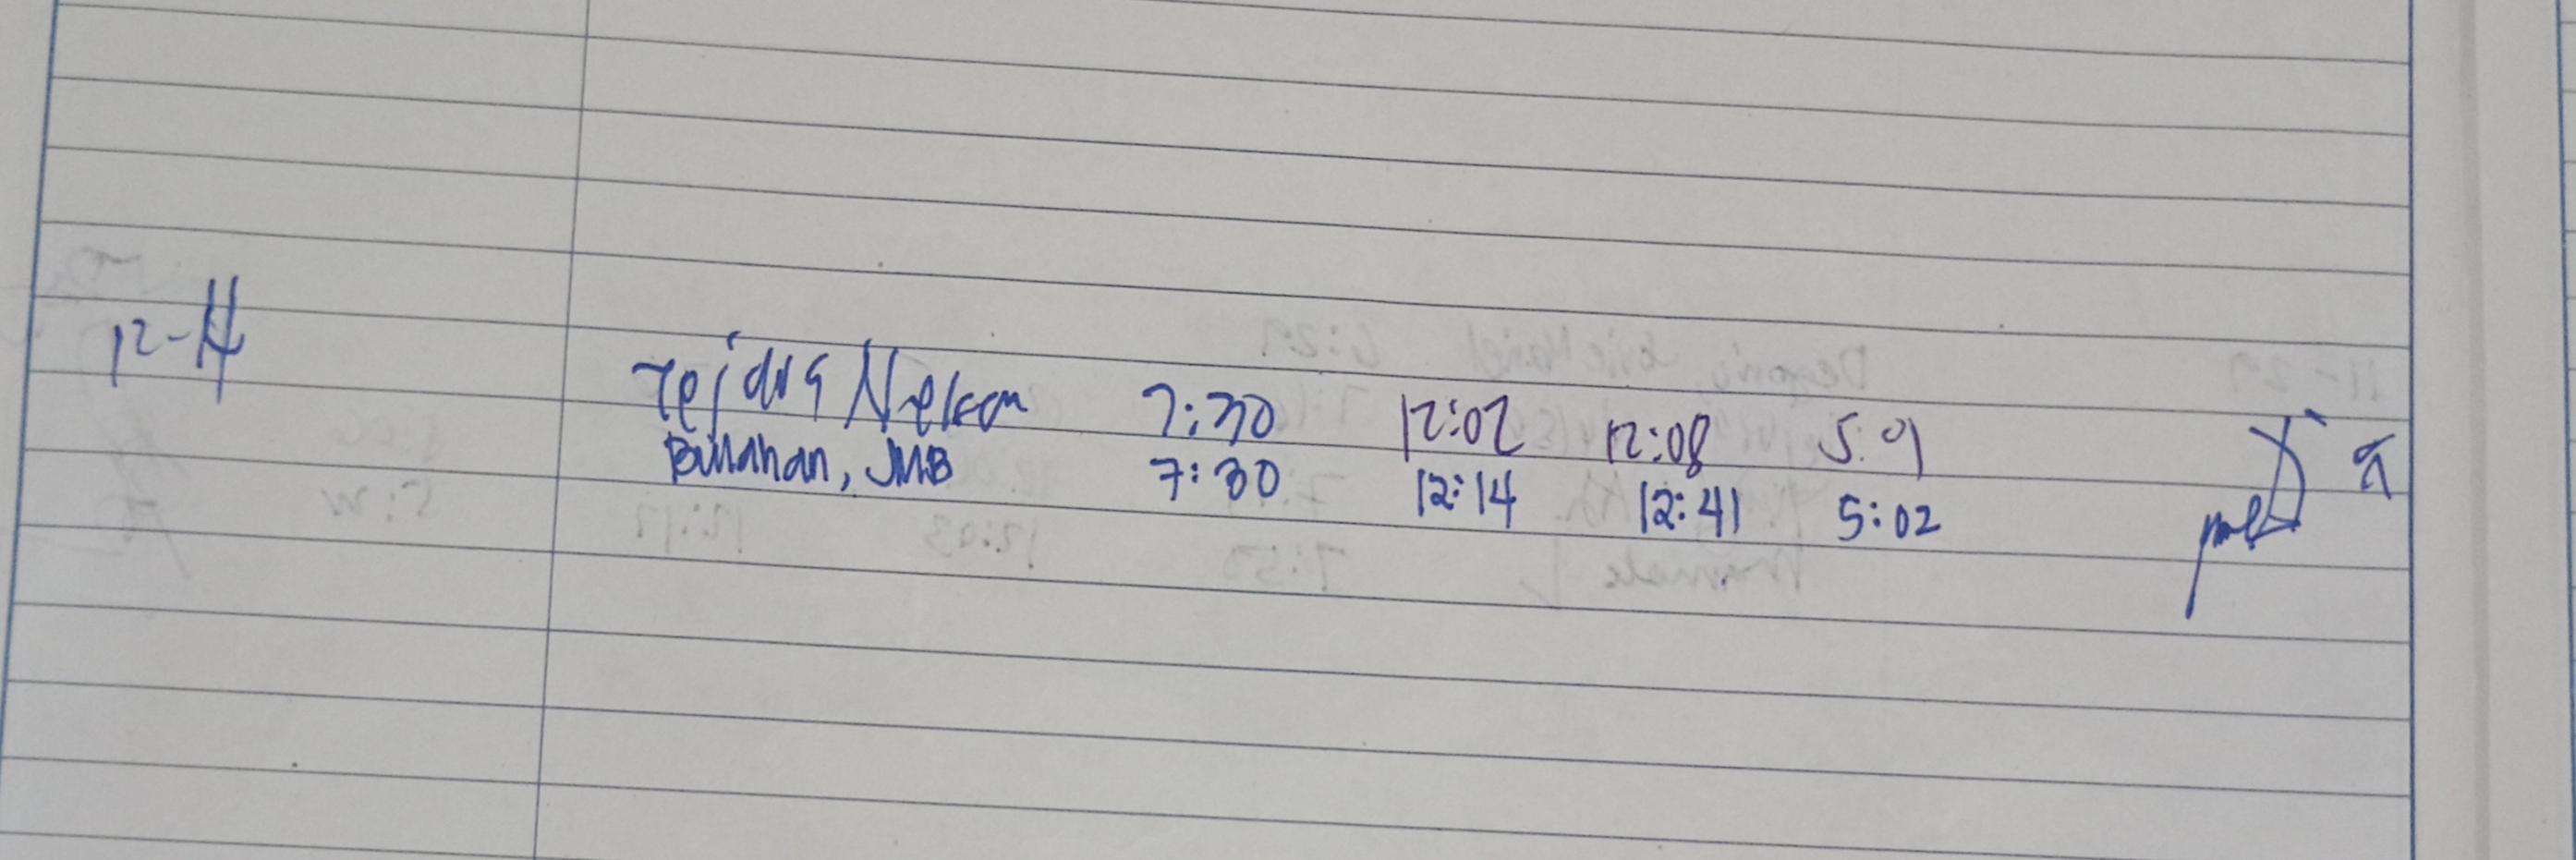 12-4
Tejada Nelson 7:30 12:02 12:08 5:01
Bulahan, JMB 7:30 12:14 12:41 5:02